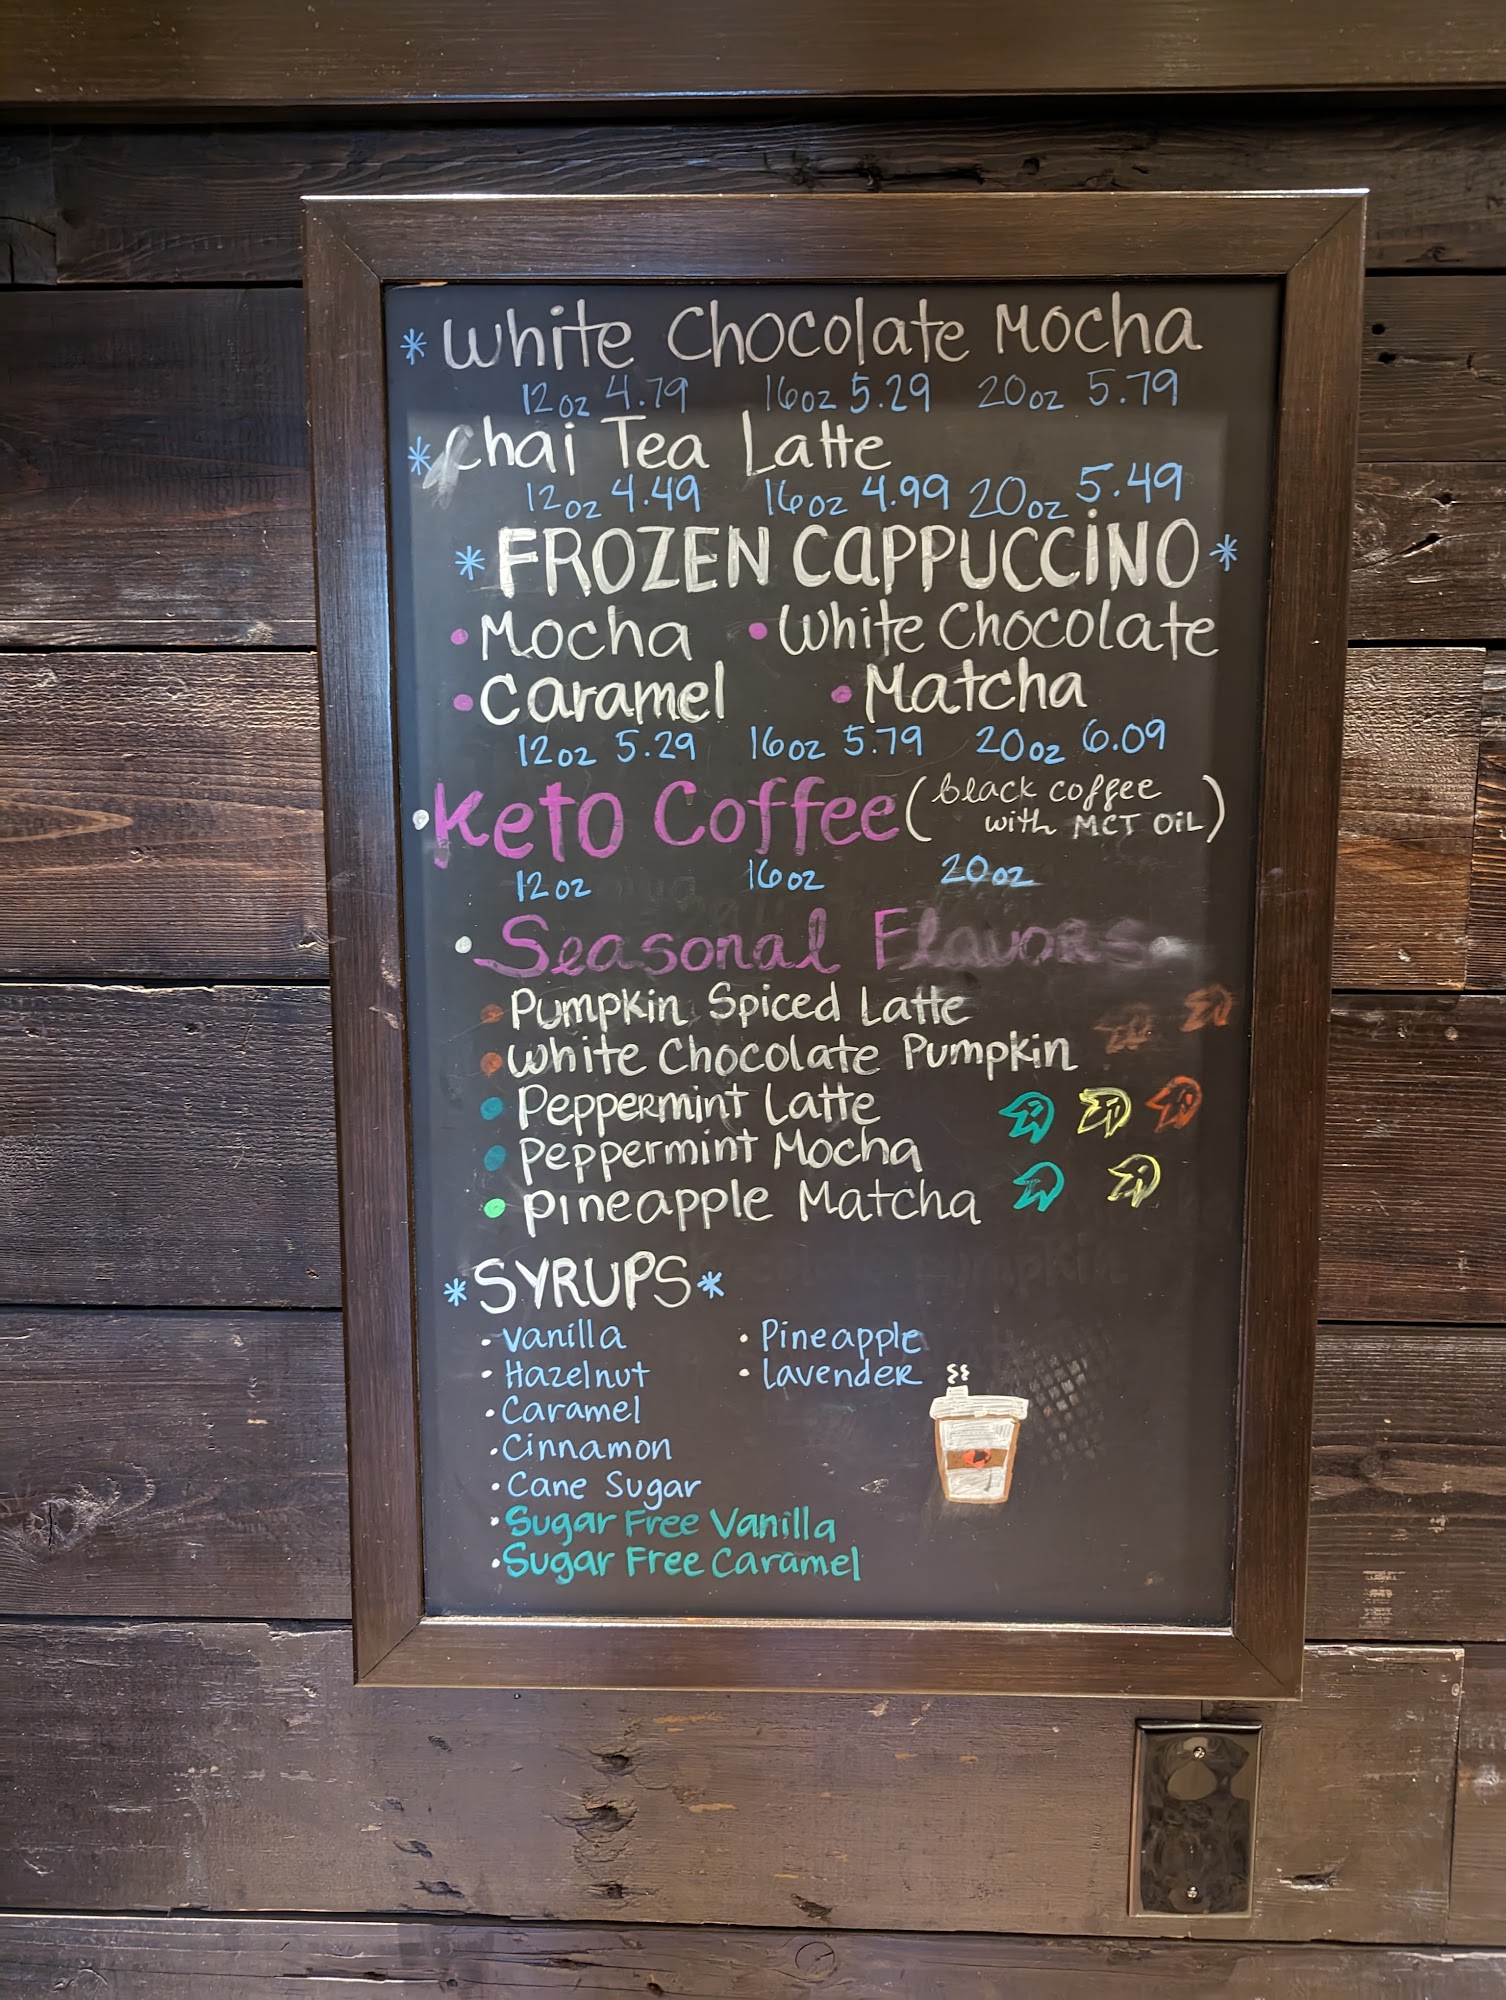 * White Chocolate Mocha
12oz 4.79 16oz 5.29 20oz 5.79
* Chai Tea Latte
12oz 4.49 16oz 4.99 20oz 5.49
* FROZEN CAPPUCCINO *
• Mocha • White Chocolate
• Caramel • Matcha
12oz 5.29 16oz 5.79 20oz 6.09
• Keto Coffee (black coffee
with MCT OIL)
12oz 16oz 20oz
• Seasonal Flavors •
• Pumpkin Spiced Latte
• White Chocolate Pumpkin
• Peppermint Latte
• Peppermint Mocha
• Pineapple Matcha
* SYRUPS *
• Vanilla • Pineapple
• Hazelnut • Lavender
• Caramel
• Cinnamon
• Cane Sugar
• Sugar Free Vanilla
• Sugar Free Caramel